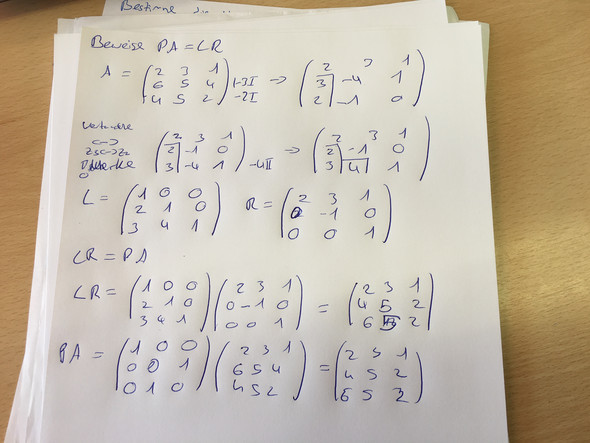 Bestimme die
Beweise PA = LR
A = ( 2 3 1 ; 6 5 4 ; 4 5 2 ) |-3I -2I → ( 2 3 1 ; 3 -4 1 ; 2 -1 0 )
vertausche
↔
Z3↔Z2
( 2 3 1 ; 2 -1 0 ; 3 -4 1 ) -4II → ( 2 3 1 ; 2 -1 0 ; 3 4 1 )
L = ( 1 0 0 ; 2 1 0 ; 3 4 1 ) R = ( 2 3 1 ; 0 -1 0 ; 0 0 1 )
LR = PA
LR = ( 1 0 0 ; 2 1 0 ; 3 4 1 ) ( 2 3 1 ; 0 -1 0 ; 0 0 1 ) = ( 2 3 1 ; 4 5 2 ; 6 5 2 )
PA = ( 1 0 0 ; 0 0 1 ; 0 1 0 ) ( 2 3 1 ; 6 5 4 ; 4 5 2 ) = ( 2 3 1 ; 4 5 2 ; 6 5 2 )